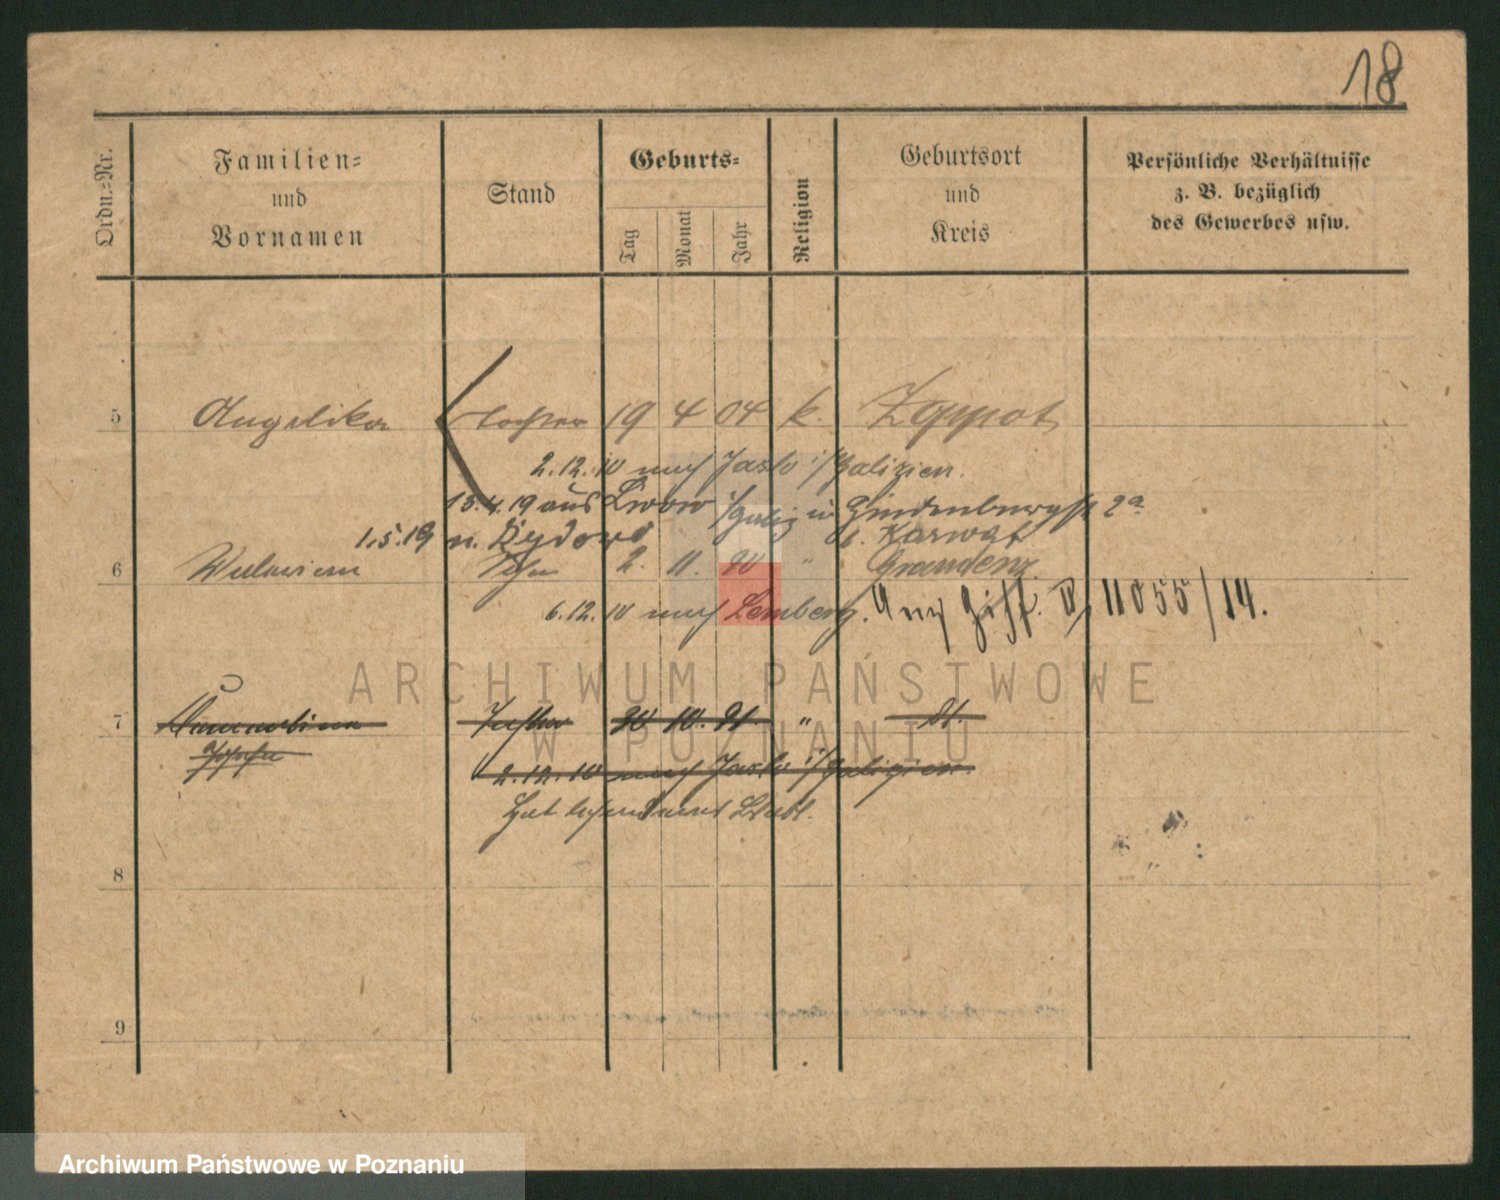 18
Ordn.-Nr.
Familien-
und
Vornamen
Stand
Geburts-
Tag
Monat
Jahr
Religion
Geburtsort
und
Kreis
Persönliche Verhältnisse
z. B. bezüglich
des Gewerbes usw.
5 Angelika Tochter 19 4 04 k. Zoppot
2.12.10 nach Jaslo i/Galizien.
15.4.19 aus Lwow i/Galiz in Hindenburgstr 2a
1.5.19 n. b. Karwat
6 Sohn 2. 11. " Graudenz
6.12.10 nach Lemberg. II 11055/14.
7 Tochter 10. "
2.12.10 nach Jaslo i/Galizien.
Hat
8
9
ARCHIWUM PAŃSTWOWE
W POZNANIU
Archiwum Państwowe w Poznaniu